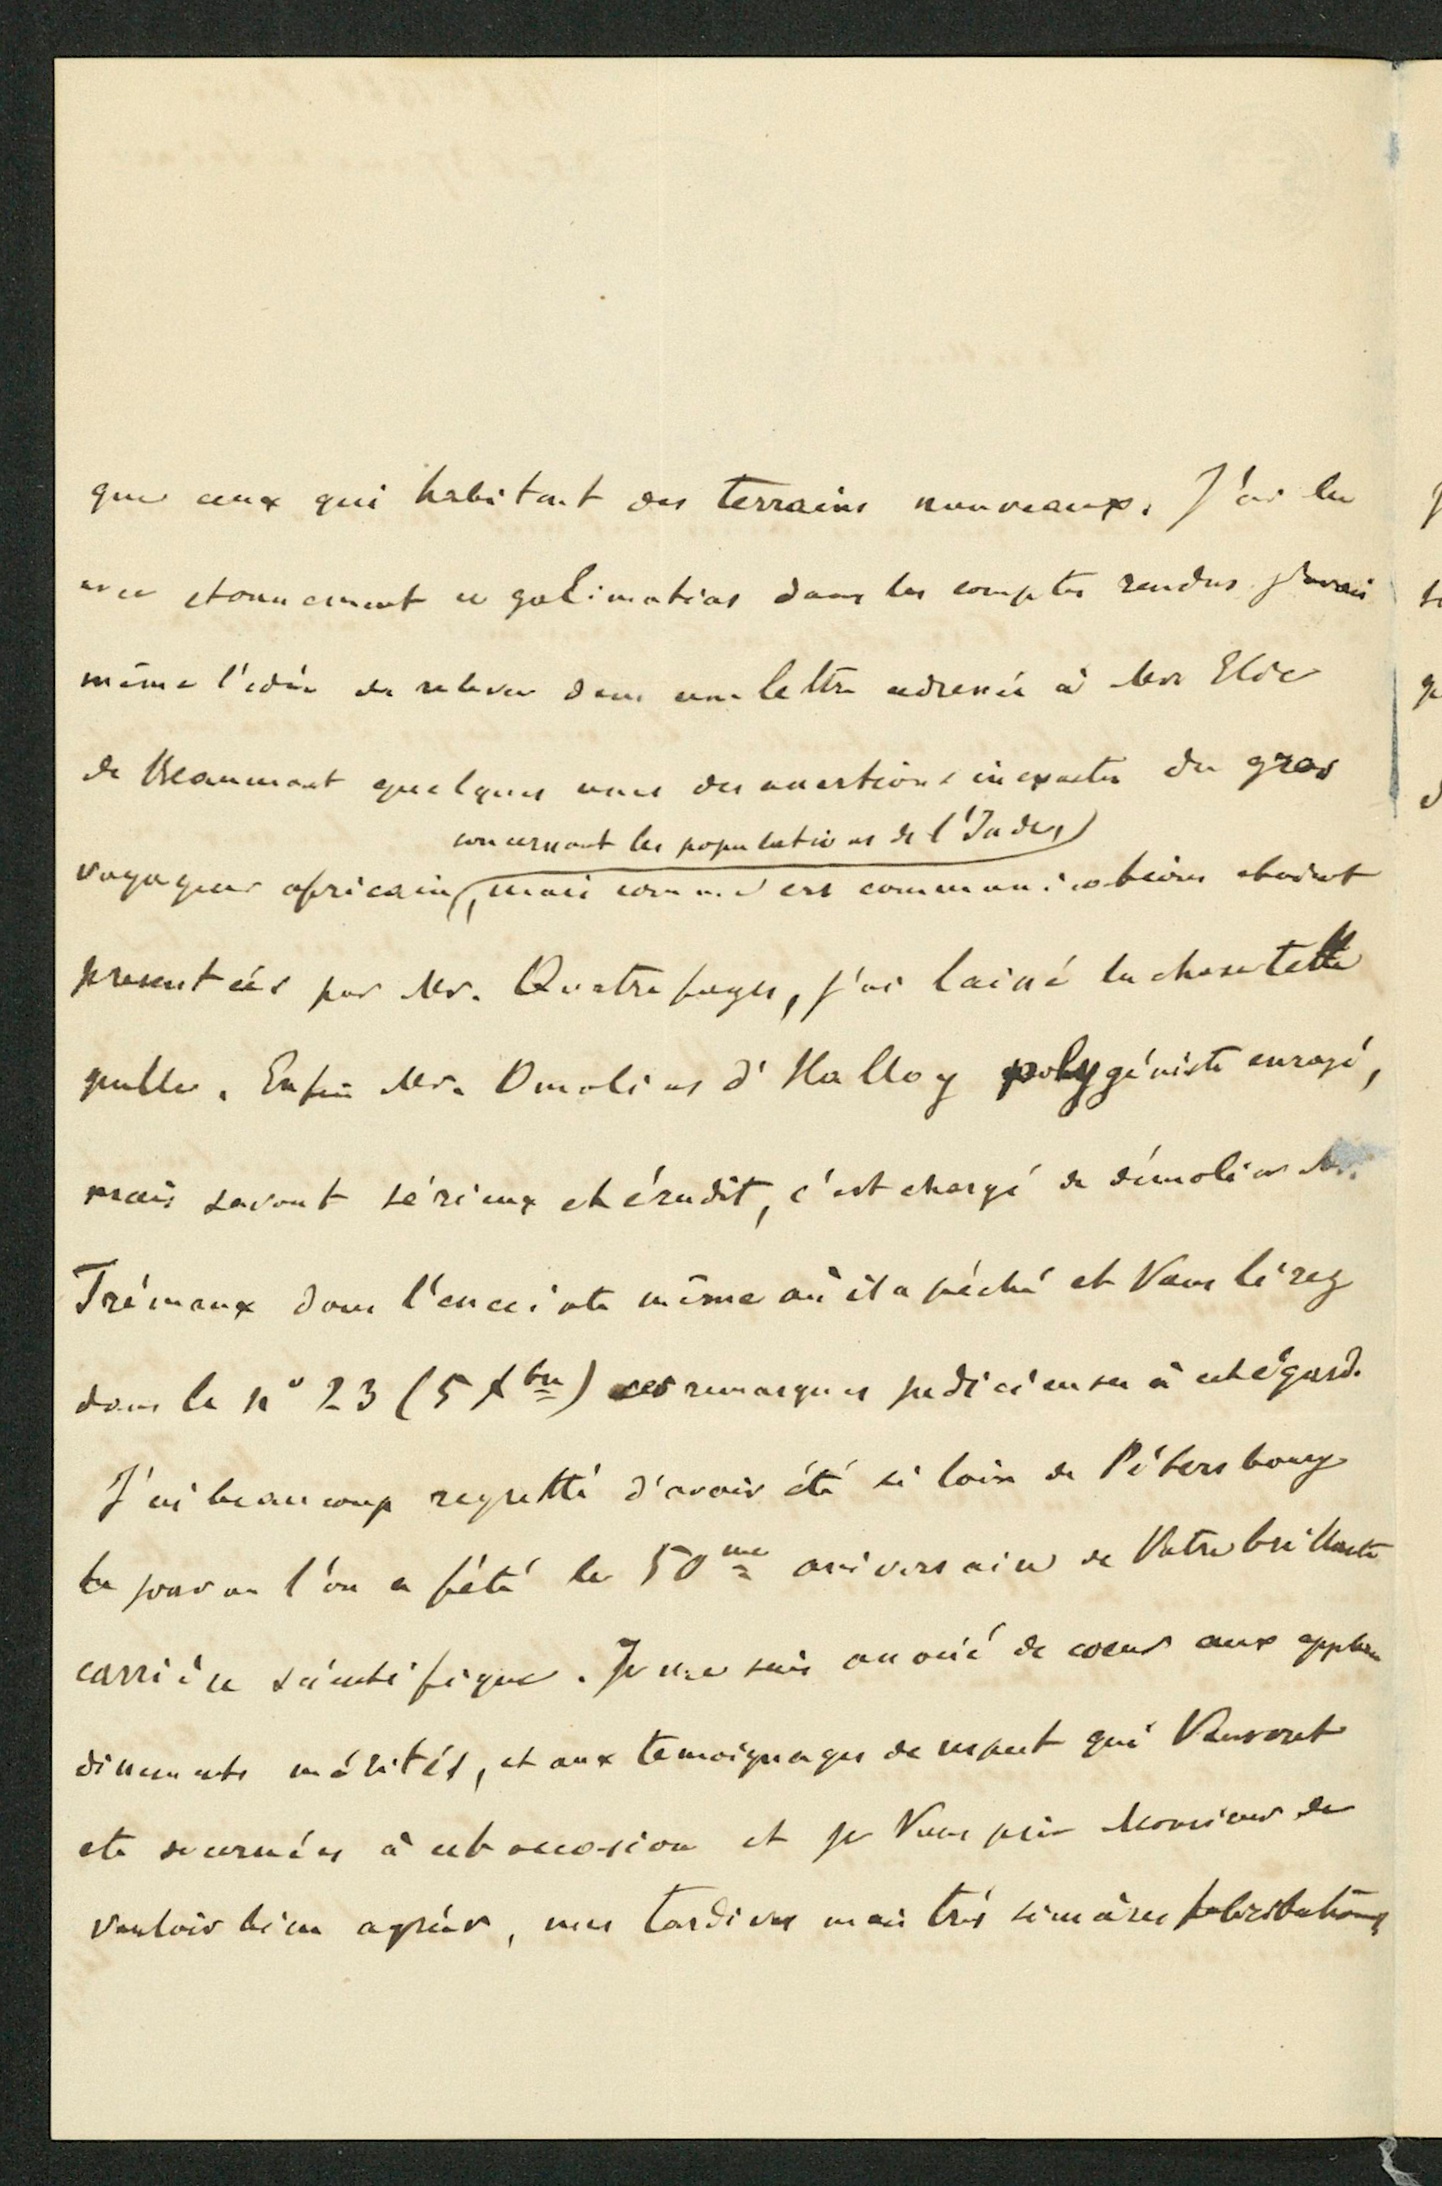 que ceux qui habitent des terrains nouveaux. J'ai lu
avec etonnement ce galimatias dans les comptes rendus j'avais
même l'idée de relever dans une lettre adressée à Mr Elie
de Beaumont quelques unes des assertions inexactes du gros
concernant les populations de l'Inde,
voyageur africain, mais comme ces communications etaient
presentées par Mr. Quatrefages, j'ai laissé la chose telle
quelle. Enfin Mr. Omalius d'Halloy polygéniste enragé,
mais savant sérieux et érudit, c'est chargé de démolir Mr.
Trémaux dans l'enceinte même où il a péché et Vous lirez
dans le no 23 (5 Xbre) ces remarques judicieuses à cet égard.
J'ai beaucoup regretté d'avoir été si loin de Pétersbourg
le jour ou l'on a fêté le 50me aniversaire de Votre brillante
carrière scientifique. Je me suis associé de coeur aux applau
dissements mérités, et aux temoignages de respect qui Vous ont
ete decernés à cet occasion et je Vous prie Monsieur de
vouloir bien agréer, mes tardives mais très sincères felicitations